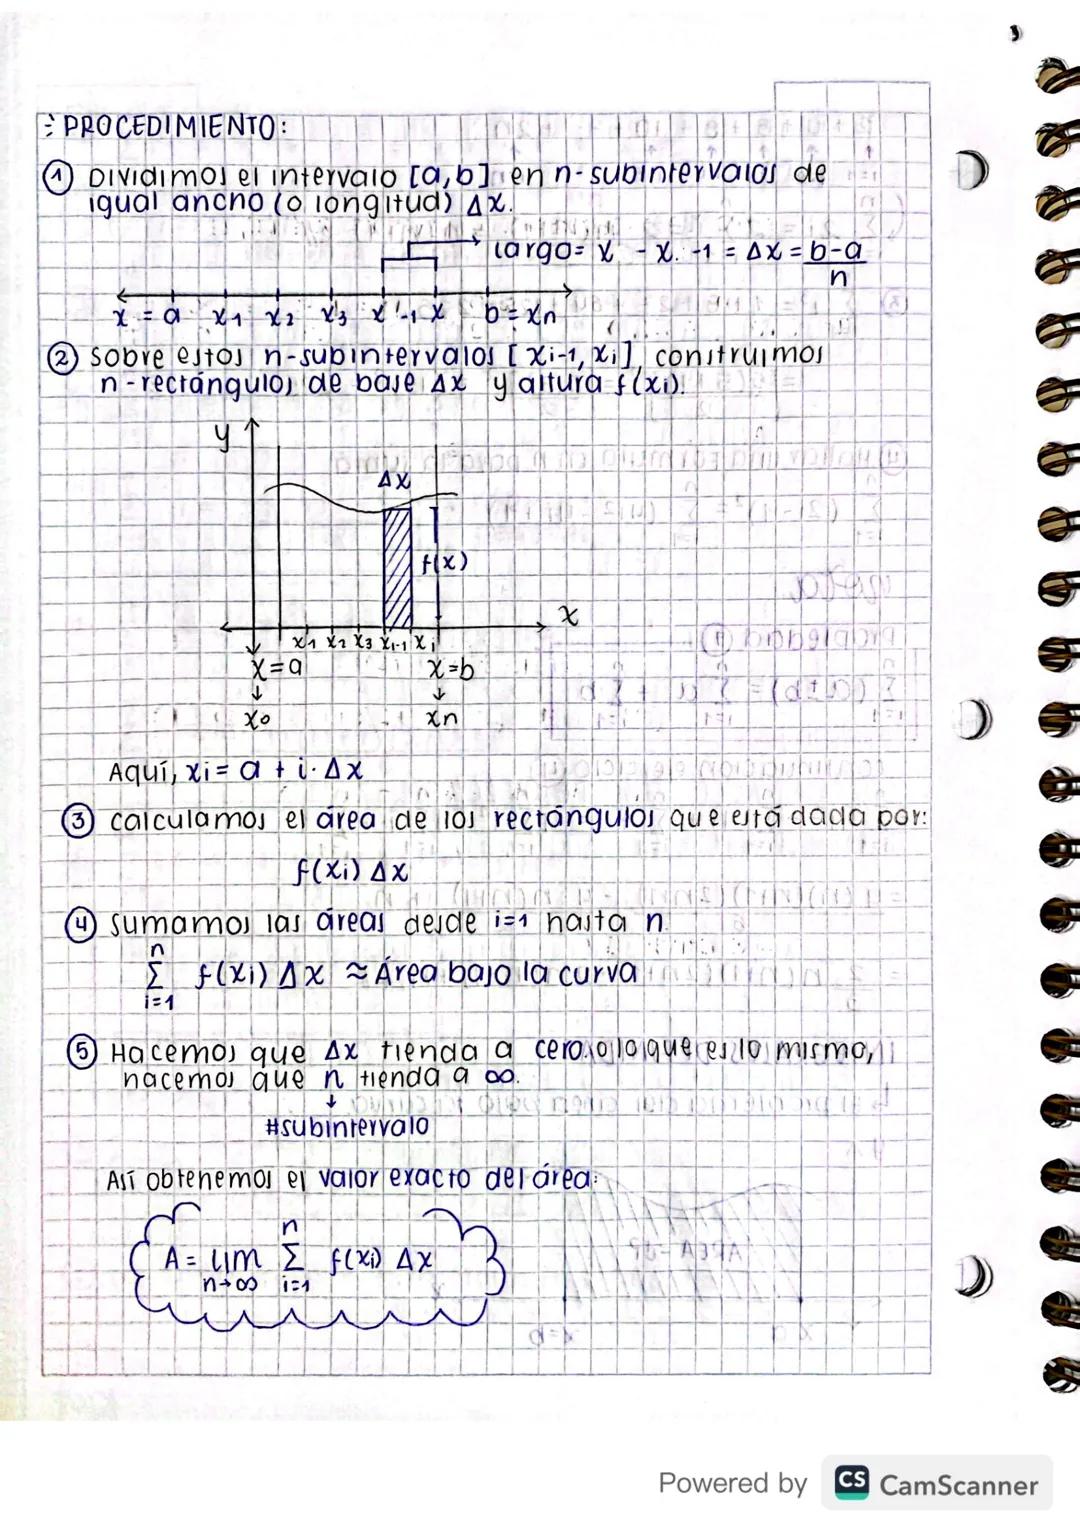 PROCEDIMIENTO:
1 Dividimos el intervalo [a,b] en n-subintervalos de
igual ancho (o longitud) Δx.
largo= x - x. -1 = Δx = b-a
n
x = a x1 x2 x3 x -1 x b = xn
2 Sobre estos n-subintervalos [xi-1, xi], construimos
n-rectángulos de base Δx y altura f(xi).
y
Δx
f(x)
x
x1 x2 x3 xi-1 xi
x=a x=b
↓ ↓
x0 xn
Aquí, xi = a + i·Δx
3 calculamos el área de los rectángulos que está dada por:
f(xi) Δx
4 sumamos las áreas desde i=1 hasta n.
n
Σ f(xi) Δx ≈ Área bajo la curva
i=1
5 Hacemos que Δx tienda a cero. o lo que es lo mismo,
hacemos que n tienda a ∞.
↓
#subintervalo
Así obtenemos el valor exacto del área:
n
A = lím Σ f(xi) Δx
n→∞ i=1
Powered by CS CamScanner